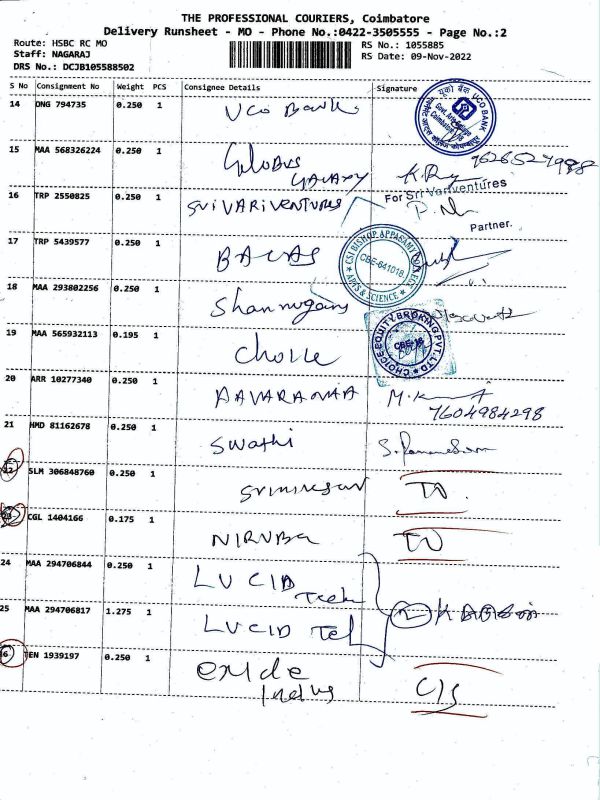 THE PROFESSIONAL COURIERS, Coimbatore
Delivery Runsheet - MO - Phone No.:0422-3505555 - Page No.:2
Route: HSBC RC MO
Staff: NAGARAJ
DRS No.: DCJB105588502
RS No.: 1055885
RS Date: 09-Nov-2022
S No Consignment No Weight PCS Consignee Details Signature
14 ONG 794735 0.250 1 UCO Bank
यूको बैंक UCO BANK
Govt. Arts College
Coimbatore
15 MAA 568326224 0.250 1 GLOBUS
GALAXY
9626527988
16 TRP 2550825 0.250 1 SRIVARIVENTURES
For Sri Variventures
Partner.
17 TRP 5439577 0.250 1
CSI BISHOP APPASAMY COLLEGE
ARTS & SCIENCE
CBE-641018
18 MAA 293802256 0.250 1
19 MAA 565932113 0.195 1
CHOICE EQUITY BROKING PVT. LTD
CBE-18
20 ARR 10277340 0.250 1
7604984298
21 HMD 81162678 0.250 1 Swathi
22 SLM 306848760 0.250 1
23 CGL 1404166 0.175 1 NIRUBA
24 MAA 294706844 0.250 1 LUCID
Tech
25 MAA 294706817 1.275 1 LUCID Tel
26 TEN 1939197 0.250 1 exide
Indus